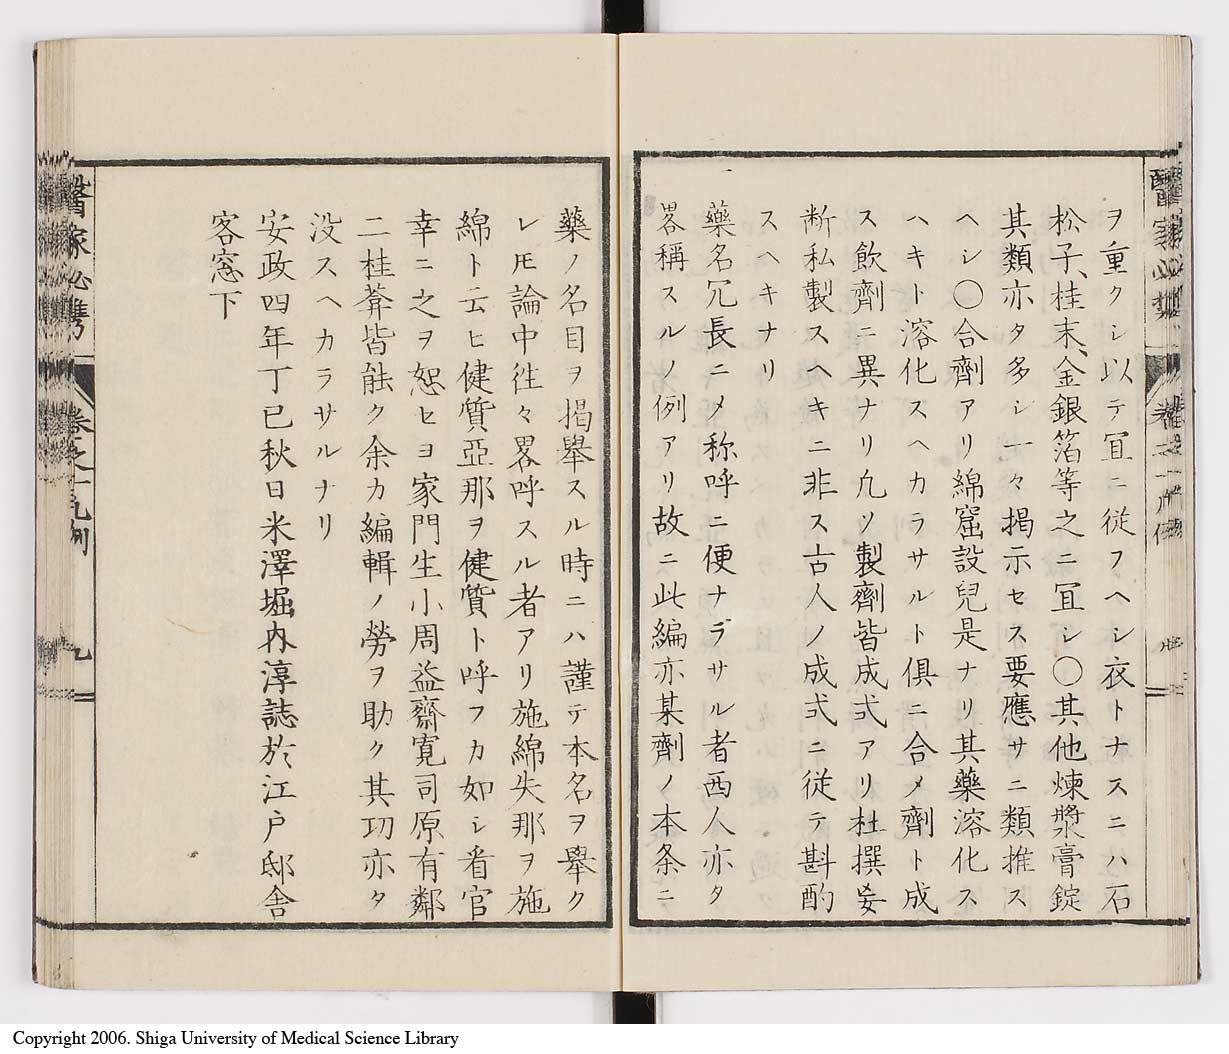 ヲ重クシ以テ冝ニ従フヘシ衣トナスニハ石
松子、桂末、金銀箔等之ニ冝シ〇其他煉漿膏錠
其類亦タ多シ一々掲示セス要應サニ類推ス
ヘシ〇合劑アリ綿窟設兒是ナリ其藥溶化ス
ハキト溶化スヘカラサルト俱ニ合メ劑ト成
ス飲劑ニ異ナリ凢ソ製劑皆成式アリ杜撰妄
断私製スヘキニ非ス古人ノ成式ニ従テ斟酌
スヘキナリ
藥名冗長ニメ称呼ニ便ナラサル者西人亦タ
畧稱スルノ例アリ故ニ此編亦某劑ノ本条ニ
藥ノ名目ヲ掲舉スル時ニハ謹テ本名ヲ舉ク
レ𪜈論中徃々畧呼スル者アリ施綿失那ヲ施
綿ト云ヒ健質亞那ヲ健質ト呼フカ如シ看官
幸ニ之ヲ恕セヨ家門生小周益齋寛司原有鄰
二桂莾皆能ク余カ編輯ノ勞ヲ助ク其功亦タ
没スヘカラサルナリ
安政四年丁巳秋日米澤堀内淳誌於江戸邸舎
客窓下
醫家必携
卷之一凡例
九
Copyright 2006. Shiga University of Medical Science Library